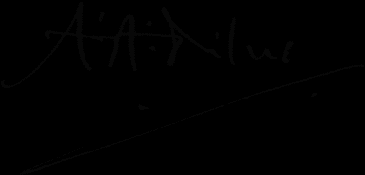 A.A. Milne